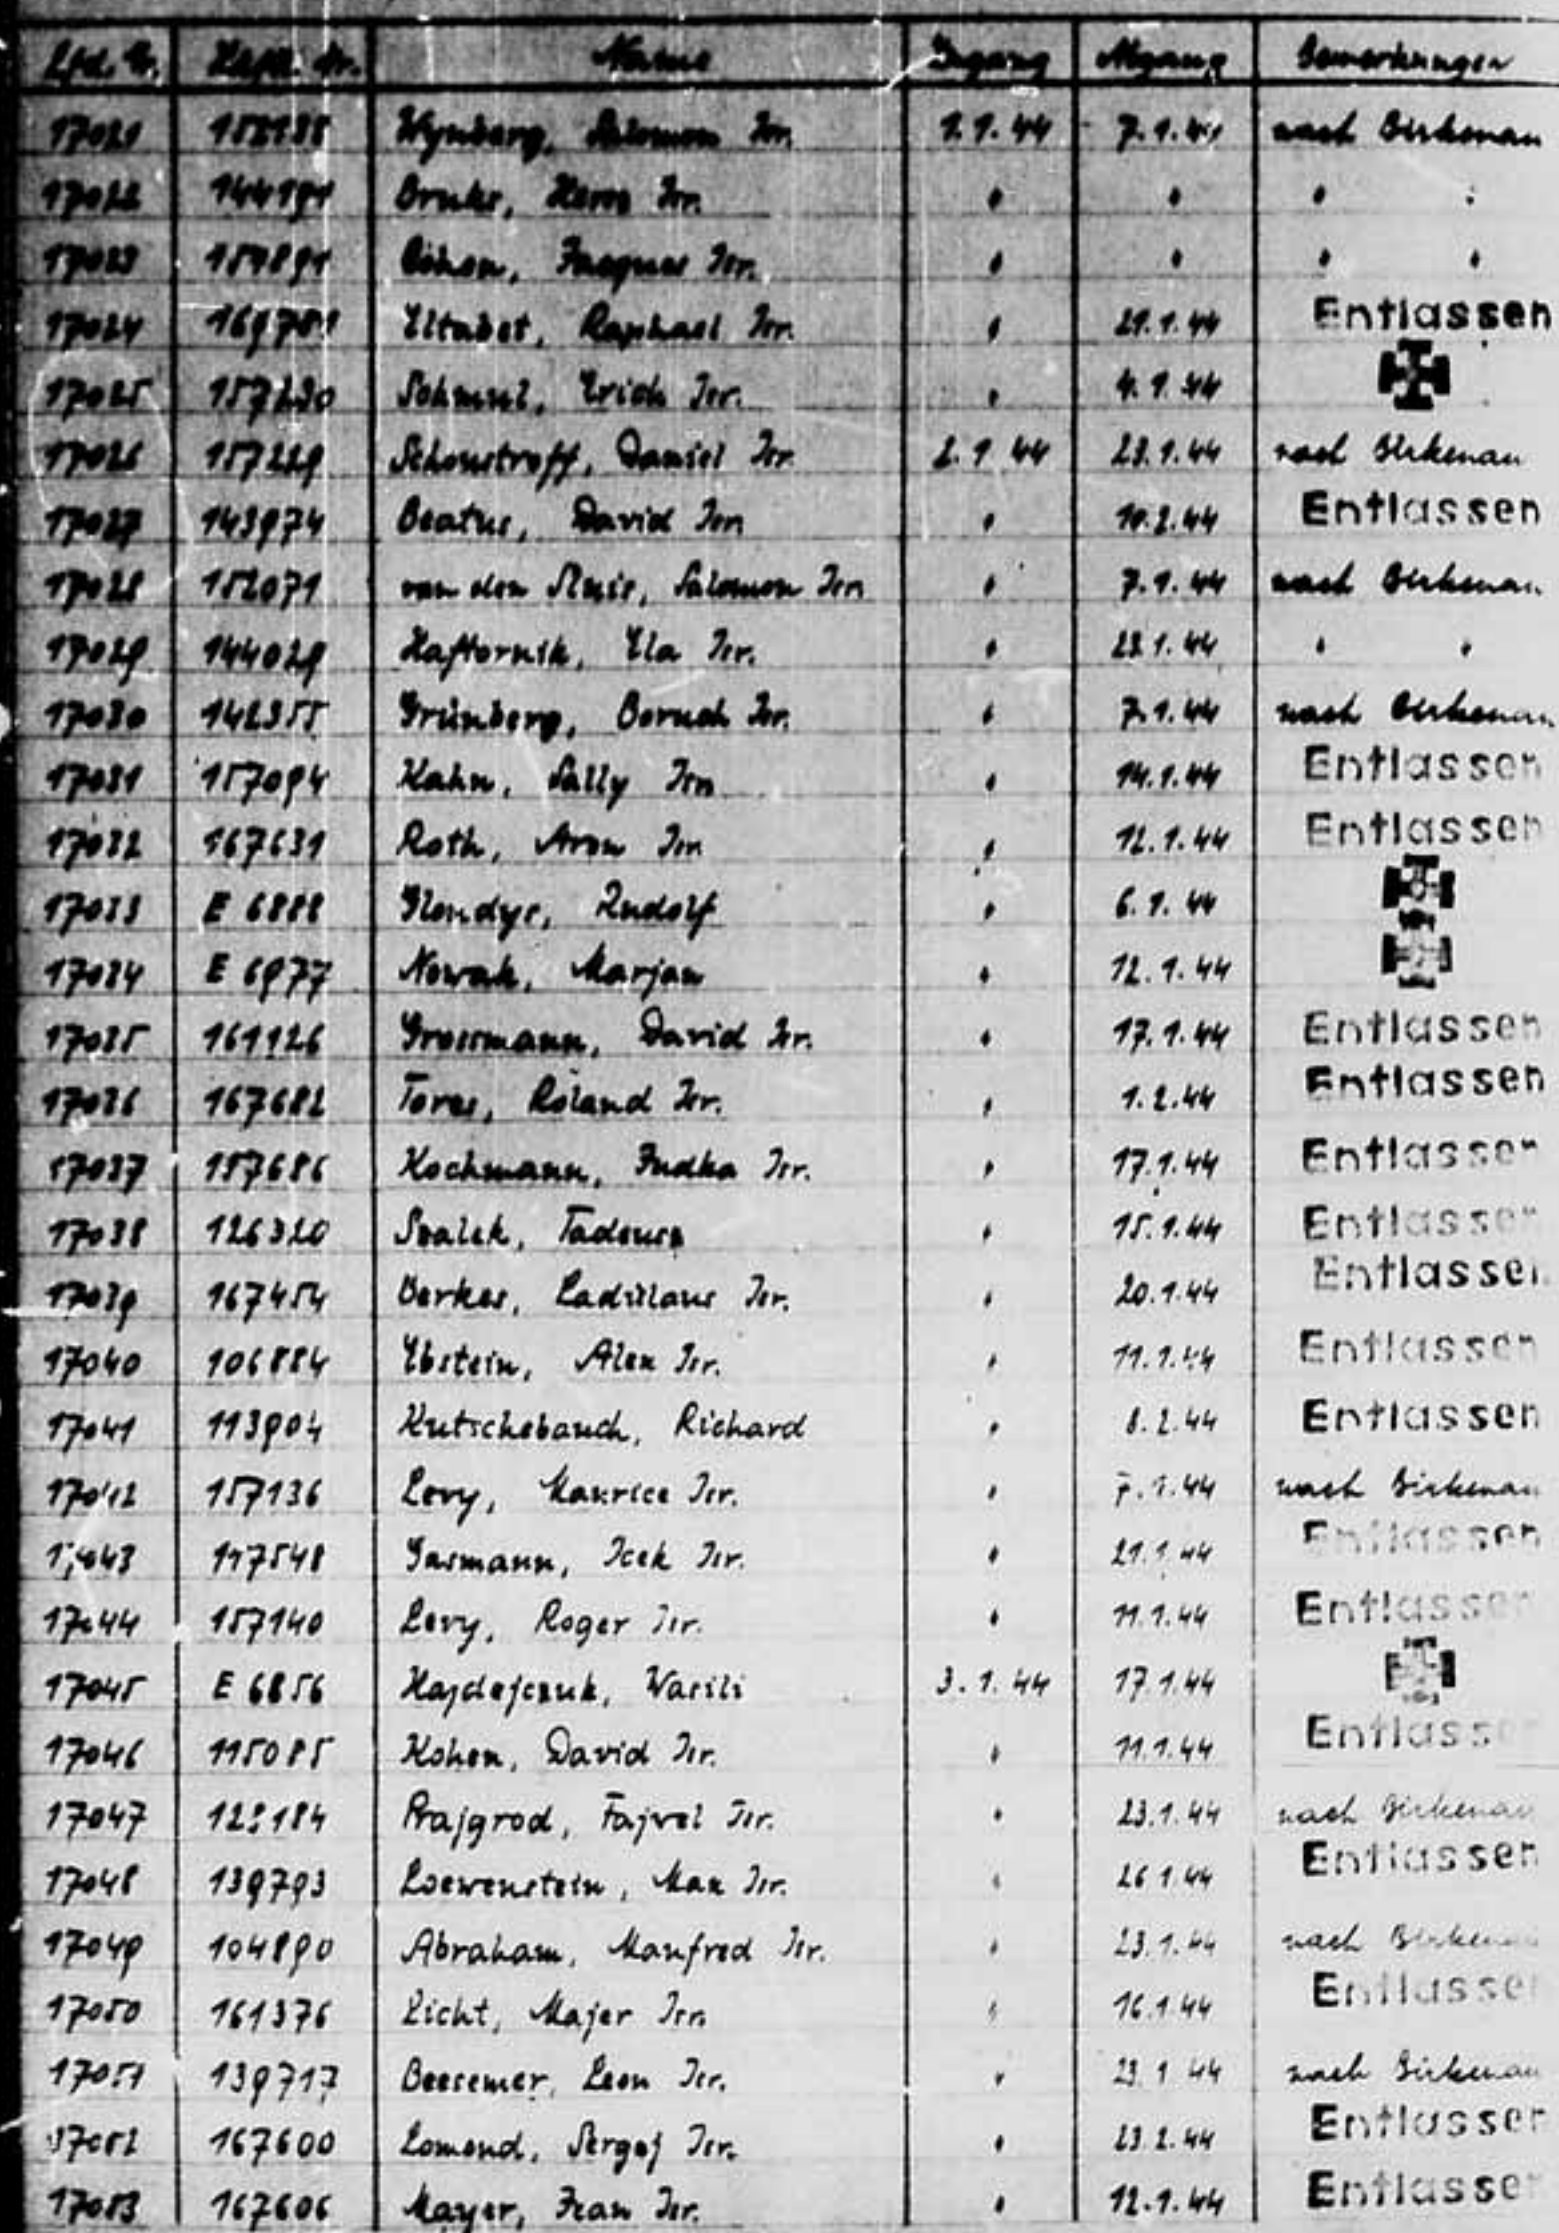 Lfd. Nr. Häftl. Nr. Name Zugang Abgang Bemerkungen
17021 Wynberg, Salomon Isr. 1.1.44 7.1.44 nach Birkenau
17022 Isr. " " " "
17023 Isr. " " " "
17024 Raphael Isr. " 21.1.44 Entlassen
17025 157230 Schmul, Erich Isr. " 4.1.44
17026 157229 Schonstroff, Daniel Isr. 2.1.44 23.1.44 nach Birkenau
17027 143974 Beatus, David Isr. " 10.2.44 Entlassen
17028 152071 Salomon Isr. " 7.1.44 nach Birkenau
17029 144029 Haftornik, Ela Isr. " 23.1.44 " "
17030 142355 Grünberg, Boruch Isr. " 7.1.44 nach Birkenau
17031 157094 Kahn, Sally Isr. " 14.1.44 Entlassen
17032 167631 Roth, Aron Isr. " 12.1.44 Entlassen
17033 E 6888 Rudolf " 6.1.44
17034 E 6977 Nowak, Marjan " 12.1.44
17035 161126 Grossmann, David Isr. " 17.1.44 Entlassen
17036 167682 Roland Isr. " 1.2.44 Entlassen
17037 157686 Kochmann, Judka Isr. " 17.1.44 Entlassen
17038 126320 Tadeusz " 15.1.44 Entlassen
17039 167454 Berkes, Ladislaus Isr. " 20.1.44 Entlassen
17040 106884 Ebstein, Alex Isr. " 11.1.44 Entlassen
17041 113904 Kutschebauch, Richard " 8.2.44 Entlassen
17042 157136 Levy, Maurice Isr. " 7.1.44 nach Birkenau
17043 117548 Gasmann, Icek Isr. " 21.1.44 Entlassen
17044 157140 Levy, Roger Isr. " 11.1.44 Entlassen
17045 E 6856 Hajdejczuk, Wasili 3.1.44 17.1.44
17046 115085 Kohen, David Isr. " 11.1.44 Entlassen
17047 Prajgrod, Fajvel Isr. " 23.1.44 nach Birkenau
17048 139793 Loewenstein, Max Isr. " 26.1.44 Entlassen
17049 104890 Abraham, Manfred Isr. " 23.1.44 nach Birkenau
17050 161376 Licht, Majer Isr. " 16.1.44 Entlassen
17051 139717 Beesemer, Leon Isr. " 23.1.44 nach Birkenau
17052 167600 Lomond, Sergej Isr. " 23.2.44 Entlassen
17053 167606 Mayer, Jean Isr. " 12.1.44 Entlassen